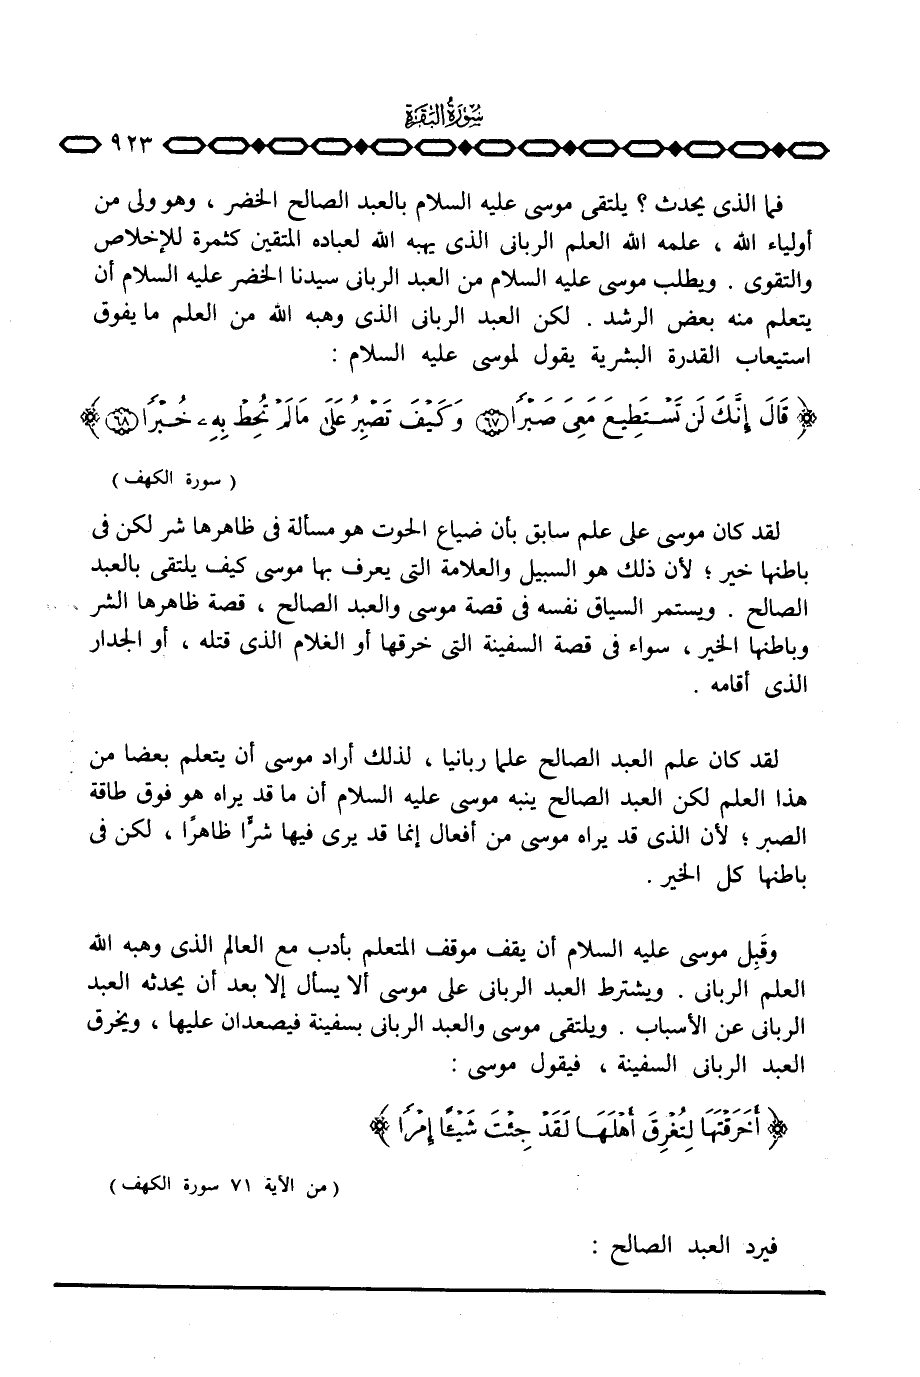 سورة البقرة
٩٢٣
فما الذى يحدث ؟ يلتقى موسى عليه السلام بالعبد الصالح الخضر ، وهو ولى من
أولياء الله ، علمه الله العلم الربانى الذى يهبه الله لعباده المتقين كثمرة للإخلاص
والتقوى . ويطلب موسى عليه السلام من العبد الربانى سيدنا الخضر عليه السلام أن
يتعلم منه بعض الرشد . لكن العبد الربانى الذى وهبه الله من العلم ما يفوق
استيعاب القدرة البشرية يقول لموسى عليه السلام :
﴿ قَالَ إِنَّكَ لَن تَسْتَطِيعَ مَعِىَ صَبْرًا ۝٦٧ وَكَيْفَ تَصْبِرُ عَلَىٰ مَا لَمْ تُحِطْ بِهِۦ خُبْرًا ۝٦٨ ﴾
( سورة الكهف )
لقد كان موسى على علم سابق بأن ضياع الحوت هو مسألة فى ظاهرها شر لكن فى
باطنها خير ؛ لأن ذلك هو السبيل والعلامة التى يعرف بها موسى كيف يلتقى بالعبد
الصالح . ويستمر السياق نفسه فى قصة موسى والعبد الصالح ، قصة ظاهرها الشر
وباطنها الخير ، سواء فى قصة السفينة التى خرقها أو الغلام الذى قتله ، أو الجدار
الذى أقامه .
لقد كان علم العبد الصالح علما ربانيا ، لذلك أراد موسى أن يتعلم بعضا من
هذا العلم لكن العبد الصالح ينبه موسى عليه السلام أن ما قد يراه هو فوق طاقة
الصبر ؛ لأن الذى قد يراه موسى من أفعال إنما قد يرى فيها شرًّا ظاهرًا ، لكن فى
باطنها كل الخير .
وقَبِل موسى عليه السلام أن يقف موقف المتعلم بأدب مع العالم الذى وهبه الله
العلم الربانى . ويشترط العبد الربانى على موسى ألا يسأل إلا بعد أن يحدثه العبد
الربانى عن الأسباب . ويلتقى موسى والعبد الربانى بسفينة فيصعدان عليها ، ويخرق
العبد الربانى السفينة ، فيقول موسى :
﴿ أَخَرَقْتَهَا لِتُغْرِقَ أَهْلَهَا لَقَدْ جِئْتَ شَيْئًا إِمْرًا ﴾
( من الآية ٧١ سورة الكهف )
فيرد العبد الصالح :